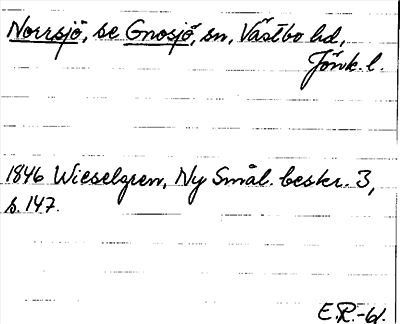 Norrsjö, se Gnosjö, sn, Västbo hd,
Jönk. l.
1846 Wieselgren, Ny Smål. beskr. 3,
s. 147.
E.R.-61.